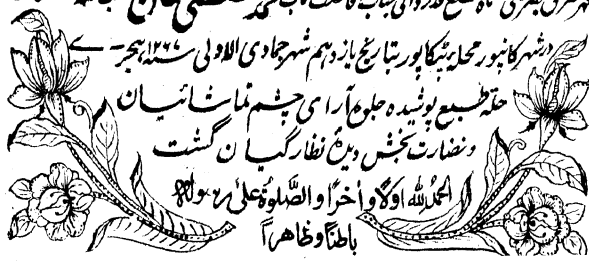 در شهر کانپور محله پٹکاپور بتاریخ یازدهم شهر جمادی الاولی سنه ۱۲۶۷ هجری
حله طبع پوشیده جلوه آرای چشم تماشائیان
و نضارت بخش دیدۀ نظارگیان گشت
الحمد لله اولا و آخرا و الصلوة علی رسوله
باطنا و ظاهرا